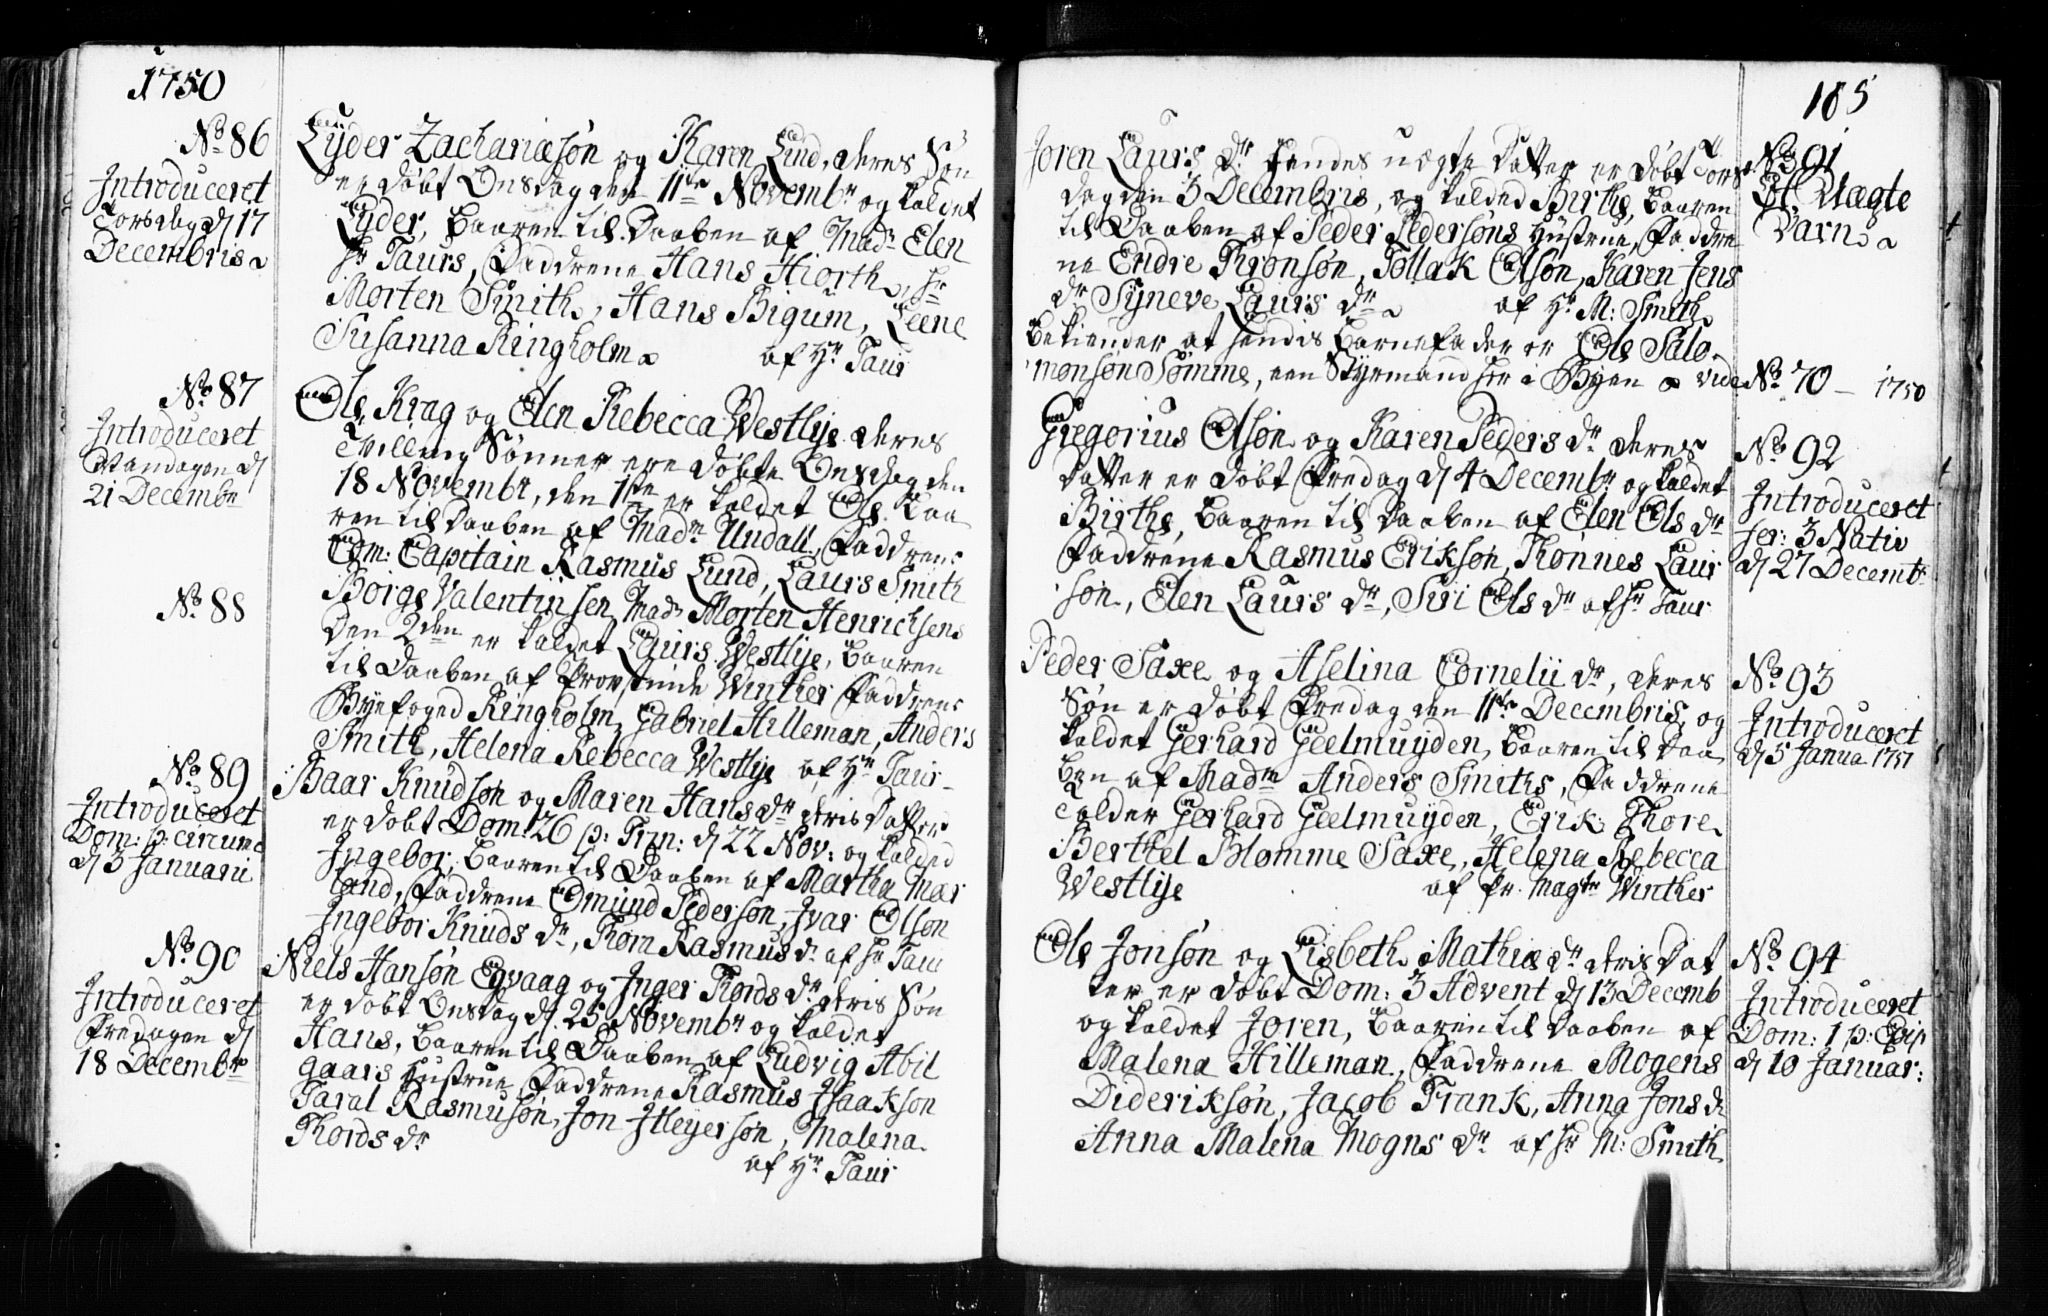 1750
No 86
Introduceret
Torsdag d 17
Decembris
Lyder Zachariæsøn og Karen Lind, deres Søn
er døbt Onsdag den 11te Novembr og kaldet
Lyder, baaren til Daaben af Madm Elen
Hr Taurs, Faddrene Hans Hiorth, Hr
Morten Smith, Hans Bigum, Leene
Susanna Ringholm af Hr Taur
No 87
Introduceret
Mandagen d
21 Decembr
Ole Krag og Elen Rebecca Westlye deres
Tvilling Sønner ere døbte Onsdag den
18 Novembr, den 1ste er kaldet Ole baa
ren til Daaben af Madm Undall, Faddrene
Com: Capitain Rasmus Lund, Laurs Smith
Borge Valentinsen, Madm Morten Henrichsens
No 88
Den 2den er kaldet Laurs Westlye, baaren
til Daaben af Provstinde Winther Faddrene
Byefoged Ringholm, Gabriel Hilleman, Anders
Smith, Helena Rebecca Westlye af Hr Taur
No 89
Introduceret
Dom: p: circumc
d 3 Januarii
Baar Knudsøn og Maren Hans dr deris Datter
er døbt Dom: 26 p: Trin: d 22 Nov: og kalded
Ingebor, baaren til Daaben af Martha Mar
land, Faddrene Omund Pedersøn, Ivar Olson
Ingebor Knuds dr, Thora Rasmus d: af Hr Taur
No 90
Introduceret
Fredagen d
18 Decembr
Niels Hansøn Egvaag og Inger Thords dr deris Søn
er døbt Onsdag d. 25 Novembr og kaldet
Hans, baaren til Daaben af Ludvig Abil
gaars Hustrue, Faddrene Rasmus Isaakson
Taral Rasmusøn, Jon Meyersøn, Malena
Thords dr
af Hr Taur
185
Joren Laurs dr hendes uægte Datter er døbt Tors
dag den 3 Decembris, og kalded Birthe, baaren
til Daaben af Peder Pedersøns Hustrue, Faddre
ne Endre Thronsøn, Tollak Olsøn, Karen Jens
dr Syneve Laurs dr af Hr M: Smith
bekiender at hendis Barnefader er Ole Salo
monsøn Sømme, een Styrmand her i Byen vide No 70 - 1750
No 91
Et Uægte
Barn
Gregorius Olsøn og Karen Peders dr deres
Datter er døbt Fredag d 4 Decembr og kaldet
Birthe, baaren til Daaben af Elen Ols dr
Faddrene Rasmus Erikson, Thønnes Laur
søn, Elen Laurs dr, Siri Ols dr af Hr Taur
No 92
Introduceret
fer: 3 Nativ
d 27 Decembr
Peder Saxe og Aselina Cornelii dr, deres
Søn er døbt Fredag den 11te Decembris, og
kaldet Gerhard Geelmuyden, baaren til Daa
ben af Madm Anders Smiths, Faddrene
Tolder Gerhard Geelmuyden, Erik Thore
Berthel Blomme Saxe, Helena Rebecca
Westlye af Pr. Magtr Winther
No 93
Introduceret
d 5 Janua 1751
Ole Jonsøn og Lisbeth Mathiæ dr deris Dat
ter er døbt Dom: 3 Advent d 13 Decemb
og kaldet Joren, baaren til Daaben af
Malena Hilleman, Faddrene Mogens
Dideriksøn, Jacob Frank, Anna Jons d
Anna Malena Mogns dr af Hr M: Smith
No 94
Introduceret
Dom: 1 p: Epip
d 10 Januar: